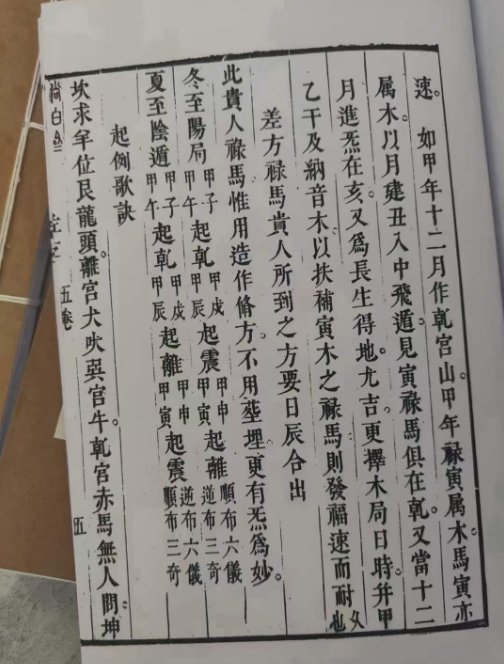 速。如甲年十二月作乾宮山甲年祿寅属木馬寅亦
属木。以月建丑入中飛遁見寅祿馬俱在乾。又當十二
月進炁在亥。又為長生得地。尤吉。更擇木局日時并甲
乙干及納音木。以扶補寅木之祿馬則發福速而耐久也
差方祿馬貴人所到之方要日辰合出
此貴人祿馬惟用造作脩方。不用塟埋。更有炁為妙。
冬至陽局甲子甲午起乾甲戌甲辰起震甲申甲寅起離順布六儀逆布三奇
夏至陰遁甲子甲午起乾甲戌甲辰起離甲申甲寅起震逆布六儀順布三奇
起例歌訣
坎求羊位艮龍頭。離宮犬吠巽宮牛。乾宮赤馬無人問。坤
五卷 五